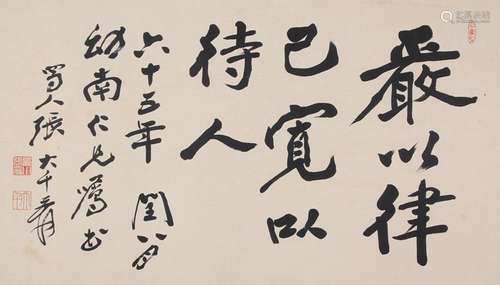 嚴以律
己寬以
待人
六十五年 閏八月
幼南仁兄屬書
蜀人張大千爰